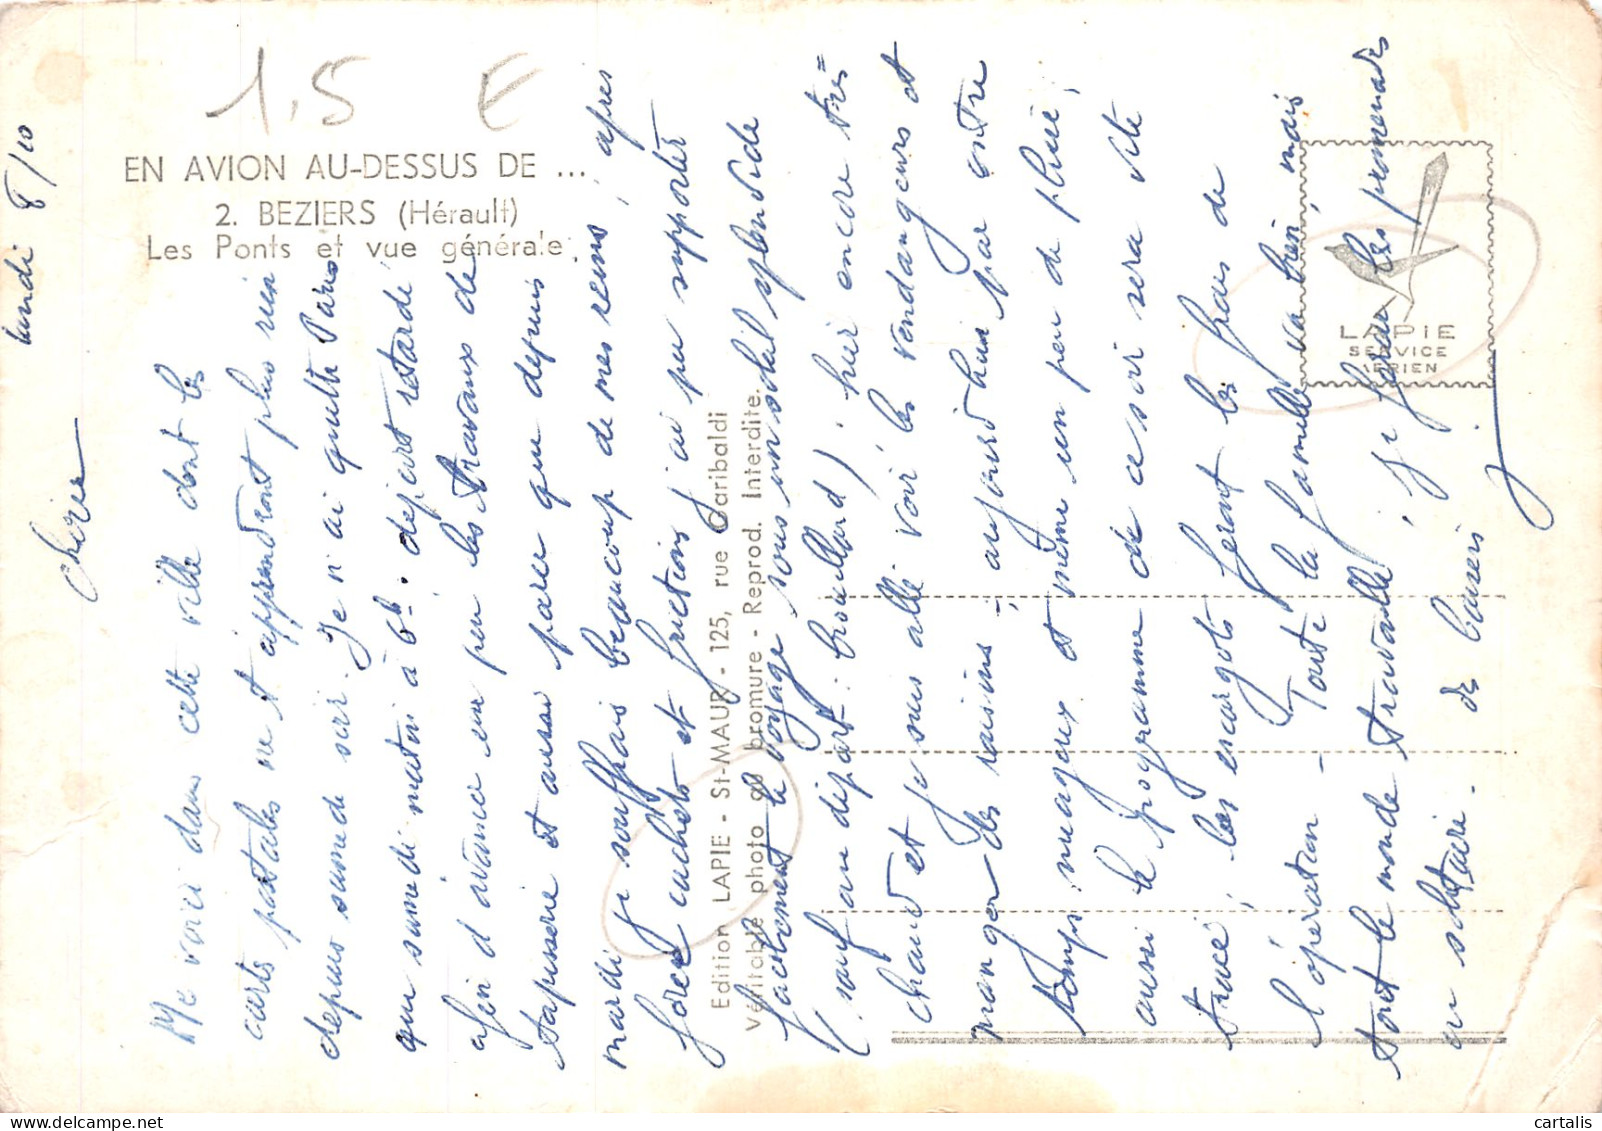 1,5 E
EN AVION AU-DESSUS DE ...
2. BEZIERS (Hérault)
Les Ponts et vue générale
Edition LAPIE - St-MAUR - 125, rue Garibaldi
Véritable photo au bromure - Reprod. Interdite.
LAPIE
SERVICE
AERIEN
lundi 8/10
Chérie
Me voici dans cette ville dont les
cartes postales ne t'apprendront plus rien
depuis samedi soir. Je n'ai quitté Paris
que samedi matin à 6h. départ retardé
afin d'avancer un peu les travaux de
tapisserie et aussi parce que depuis
mardi je souffrais beaucoup de mes reins, après
force cachets et frictions j'ai pu supporter
facilement le voyage sous un soleil splendide
(sauf au départ: brouillard); hier encore très
chaud et je suis allé voir les vendangeurs et
manger des raisins; aujourd'hui par contre
temps nuageux et même un peu de pluie;
aussi le programme de ce soir sera vite
trouvé; les escargots feront les frais de
l'opération - Toute la famille va bien, mais
tout le monde travaille; je ferai les promenades
en solitaire. des baisers
J